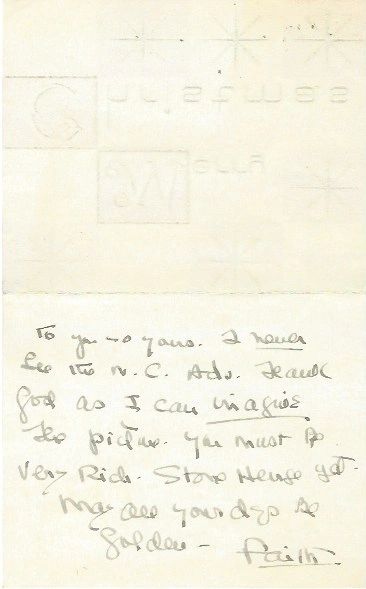 To you - so yours. I never
see the N. C. Adv. Thank
God as I can imagine
the picture. You must be
Very Rich. Stone Henge yet.
May all your days be
golden -
Faith.